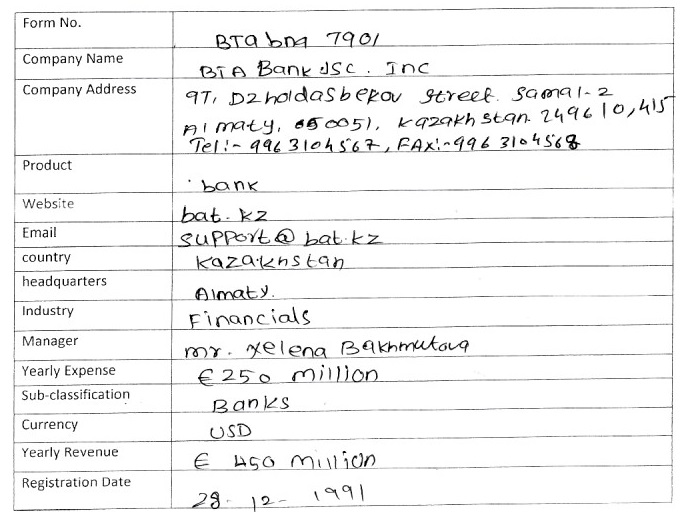 Form No.
BTA bng 7901
Company Name
BTA Bank JSC. Inc
Company Address
97, Dzholdasbekov street. Samal-2
Almaty, 050051, Kazakhstan. 249610,415
Tel:- 9963104567, FAX:-9963104568
Product
bank
Website
bat.kz
Email
support@bat.kz
country
Kazakhstan
headquarters
Almaty.
Industry
Financials
Manager
mr. Yelena Bakhmutova
Yearly Expense
€ 250 million
Sub-classification
Banks
Currency
USD
Yearly Revenue
€ 450 million
Registration Date
28-12-1991